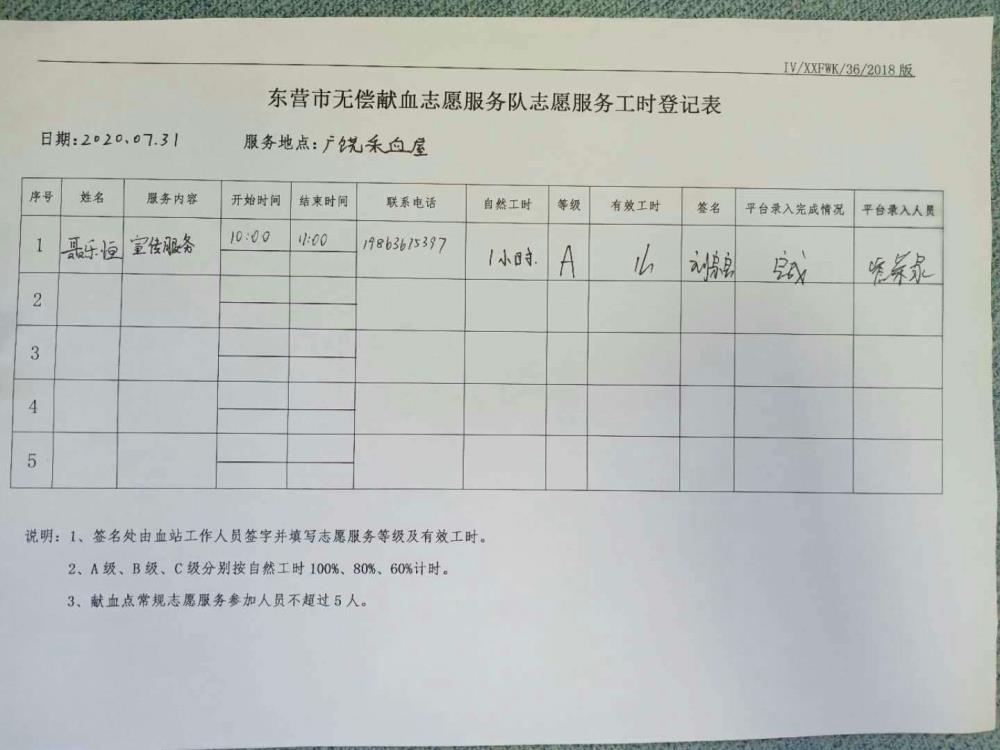 IV/XXFWK/36/2018版
东营市无偿献血志愿服务队志愿服务工时登记表
日期:2020.07.31 服务地点:广饶采血屋
序号 姓名 服务内容 开始时间 结束时间 联系电话 自然工时 等级 有效工时 签名 平台录入完成情况 平台录入人员
1 聂乐恒 宣传服务 10:00 11:00 19863615397 1小时 A 1h 完成
2
3
4
5
说明:1、签名处由血站工作人员签字并填写志愿服务等级及有效工时。
2、A级、B级、C级分别按自然工时100%、80%、60%计时。
3、献血点常规志愿服务参加人员不超过5人。